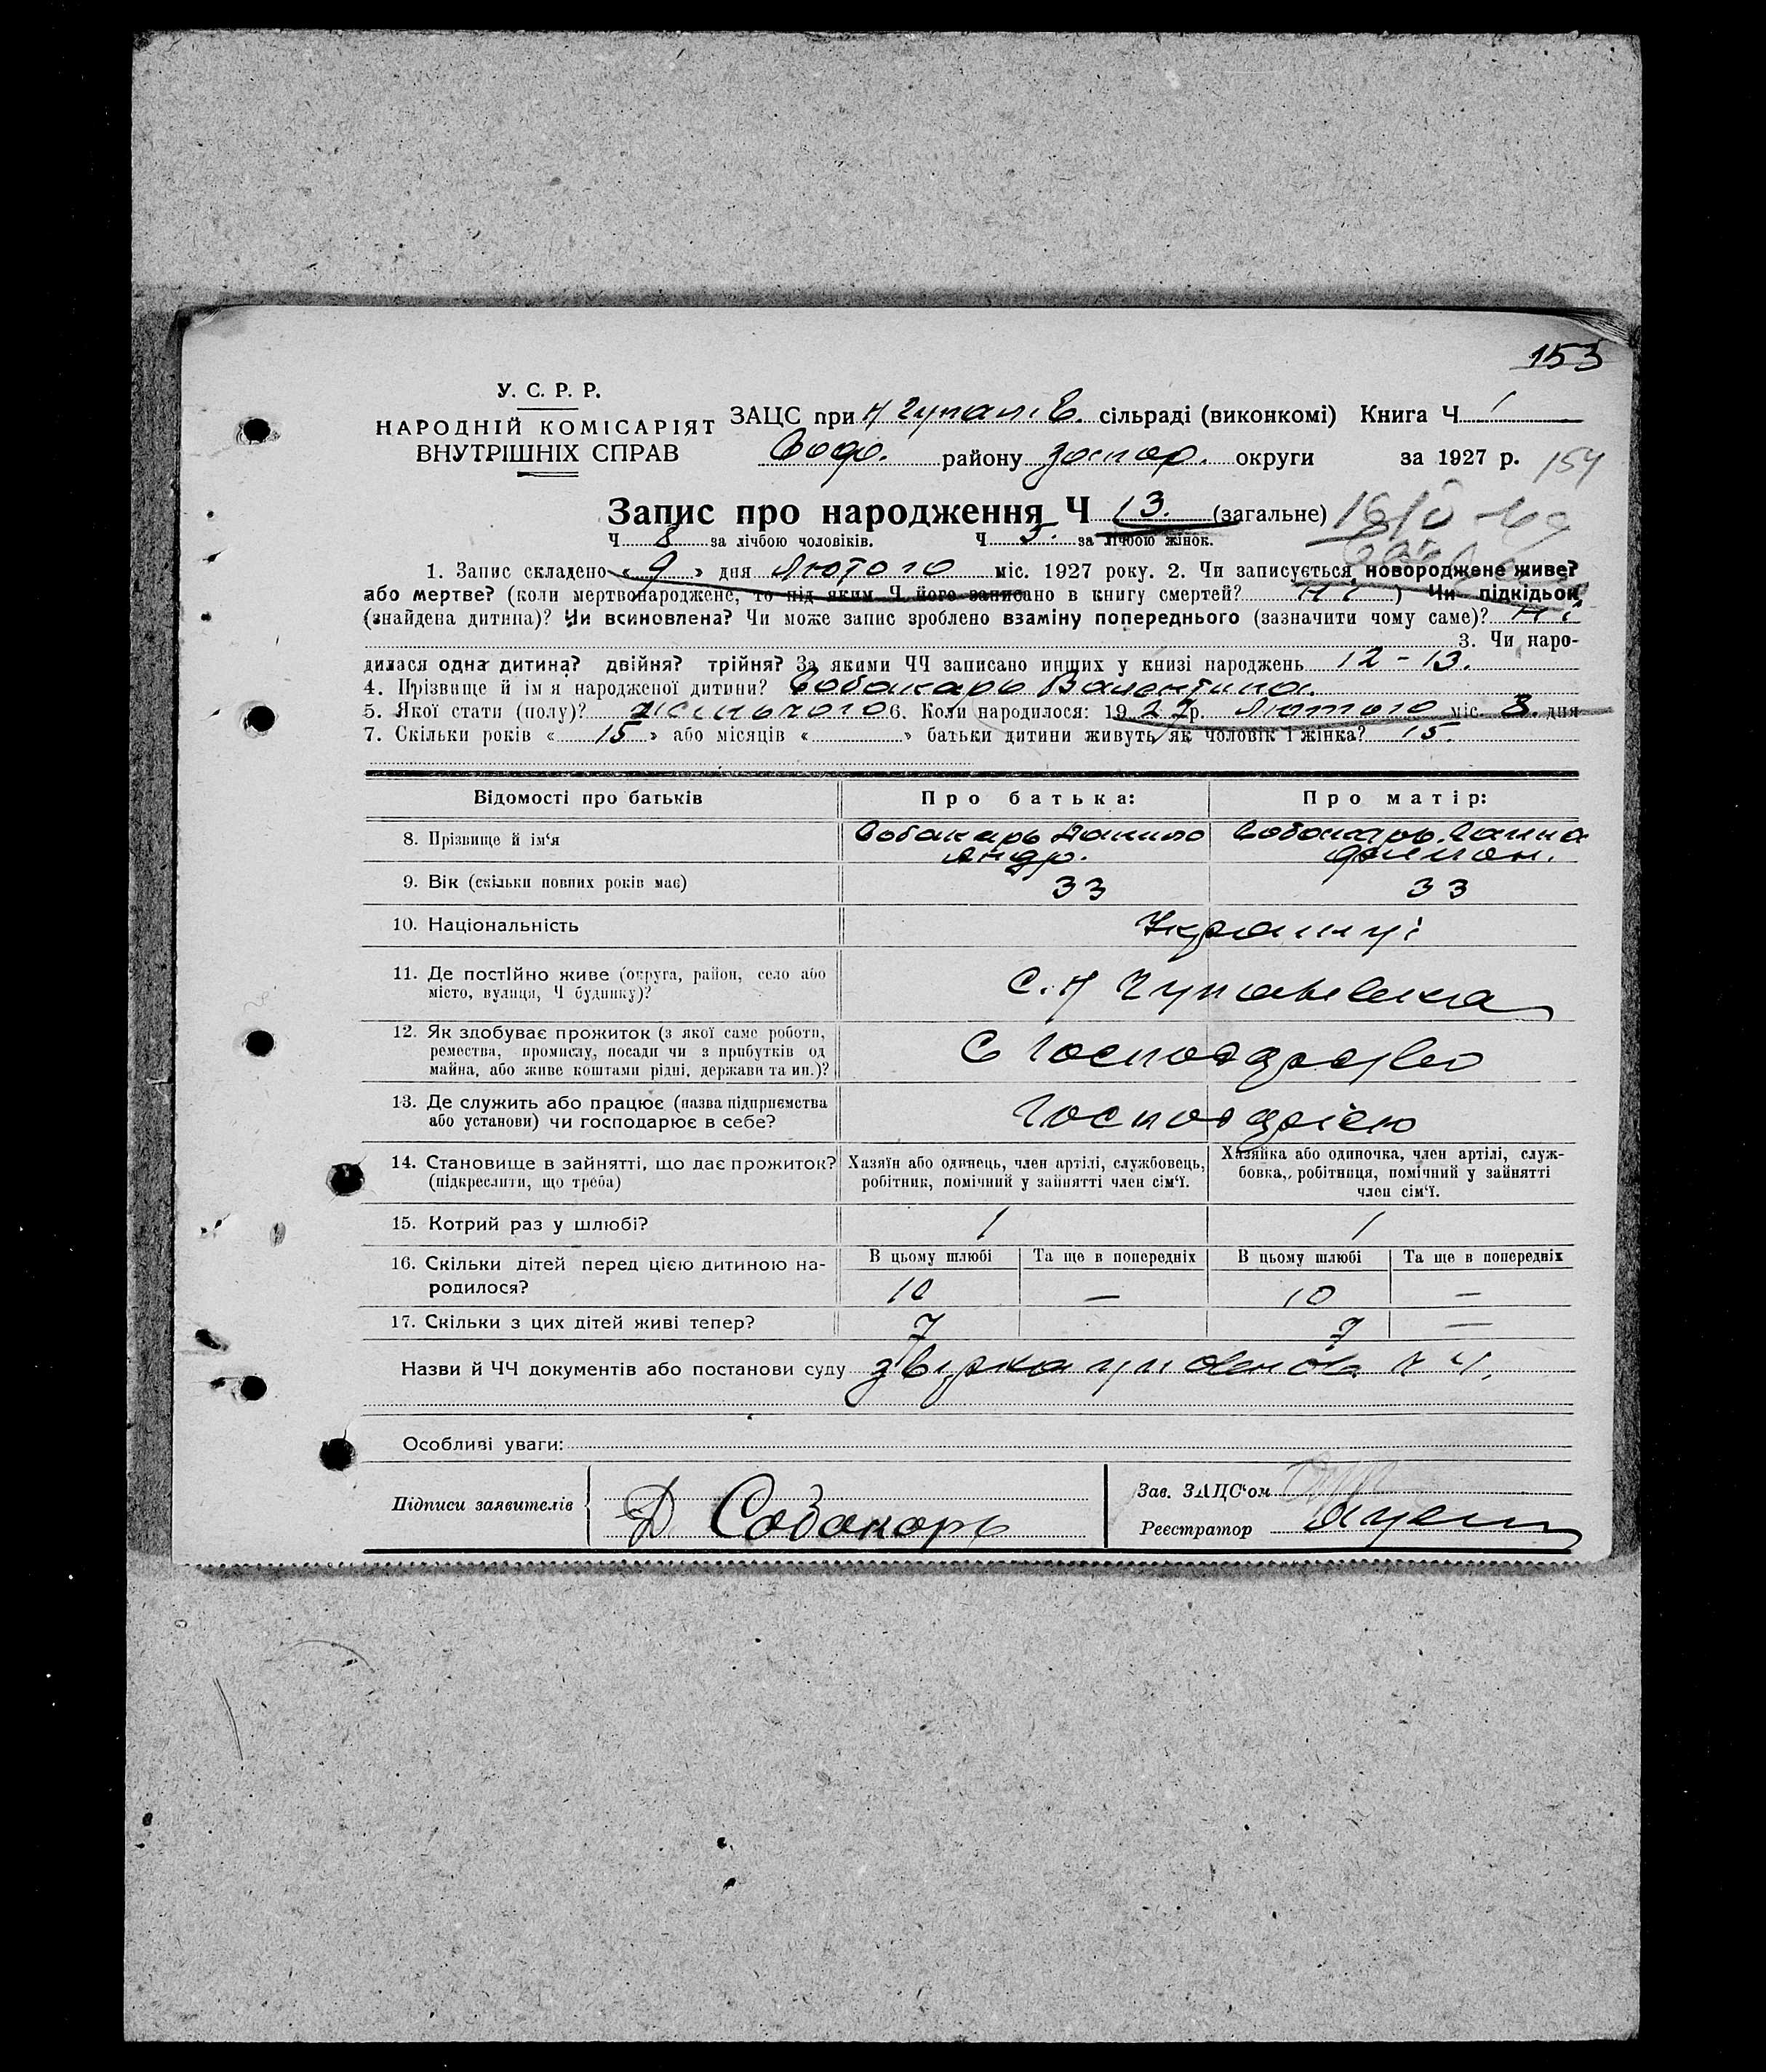 153
У. С. Р. Р.
НАРОДНІЙ КОМІСАРІЯТ
ВНУТРІШНІХ СПРАВ
ЗАЦС при Н Гупалів. сільраді (виконкомі) Книга Ч 1
району запор. округи за 1927 р. 154
Запис про народження Ч 13. (загальне)
Ч 8 за лічбою чоловіків. Ч 5. за лічбою жінок.
1. Запис складено «9» дня Лютого міс. 1927 року. 2. Чи записується новороджене живе?
або мертве? (коли мертвонароджене, то під яким Ч його записано в книгу смертей? Ні ) Чи підкідьок
(знайдена дитина)? Чи всиновлена? Чи може запис зроблено взаміну попереднього (зазначити чому саме)? Ні
3. Чи наро-
дилася одна дитина? двійня? трійня? За якими ЧЧ записано инших у книзі народжень 12 - 13.
4. Прізвище й ім я народженої дитини? Собакарь Валентина.
5. Якої стати (полу)? жіночого 6. Коли народилося: 1927р. Лютого міс. 8. дня
7. Скільки років «15» або місяців « » батьки дитини живуть як чоловік і жінка? 15.
Відомості про батьків Про батька: Про матір:
8. Прізвище й ім'я Собакарь Данило Собакарь Ганна
Андр. Филимон.
9. Вік (скільки повних років має) 33 33
10. Національність Українці
11. Де постІйно живе (округа, район, село або
місто, вулиця, Ч будинку)? С. Н Гупалівка
12. Як здобуває прожиток (з якої саме роботи,
ремества, промислу, посади чи з прибутків од
майна, або живе коштами рідні, держави та ин.)? С Господарство
13. Де служить або працює (назва підприємства
або установи) чи господарює в себе? Господарією
14. Становище в зайнятті, що дає прожиток?
(підкреслити, що треба)
Хазяїн або одинець, член артілі, службовець,
робітник, помічний у зайнятті член сім'ї.
Хазяйка або одиночка, член артілі, служ-
бовка,, робітниця, помічний у зайнятті
член сім'ї.
15. Котрий раз у шлюбі? 1 1
В цьому шлюбі Та ще в попередніх В цьому шлюбі Та ще в попередніх
16. Скільки дітей перед цією дитиною на-
родилося? 10 — 10 —
17. Скільки з цих дітей живі тепер? 7 7 —
Назви й ЧЧ документів або постанови суду
Особливі уваги:
Підписи заявителів Д Собакарь
Зав. ЗАЦС'ом
Реєстратор